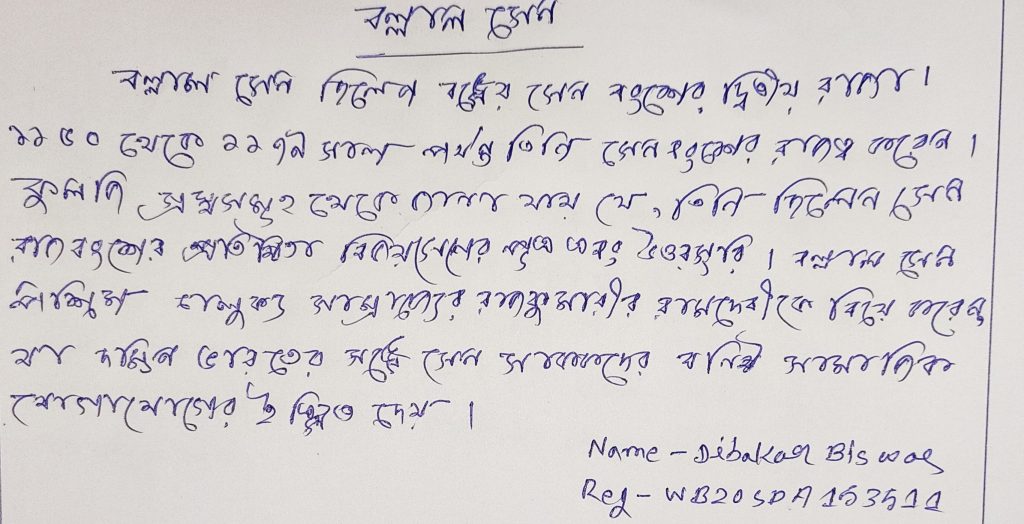 বল্লাল সেন
বল্লাল সেন ছিলেন বঙ্গের সেন বংশের দ্বিতীয় রাজা।
১১৬০ থেকে ১১৭৯ সাল পর্যন্ত তিনি সেনবংশের রাজত্ব করেন।
কুলজি গ্রন্থসমূহ থেকে জানা যায় যে, তিনি ছিলেন সেন
রাজবংশের প্রতিষ্ঠাতা বিজয়সেনের পুত্র এবং উত্তরসূরি। বল্লাল সেন
পশ্চিম চালুক্য সাম্রাজ্যের রাজকুমারীর রামদেবীকে বিয়ে করেন
যা দক্ষিণ ভারতের সঙ্গে সেন শাসকদের ঘনিষ্ঠ সামাজিক
যোগাযোগের ইঙ্গিত দেয়।
Name - Dibakar Biswas
Reg - WB20SDA153511